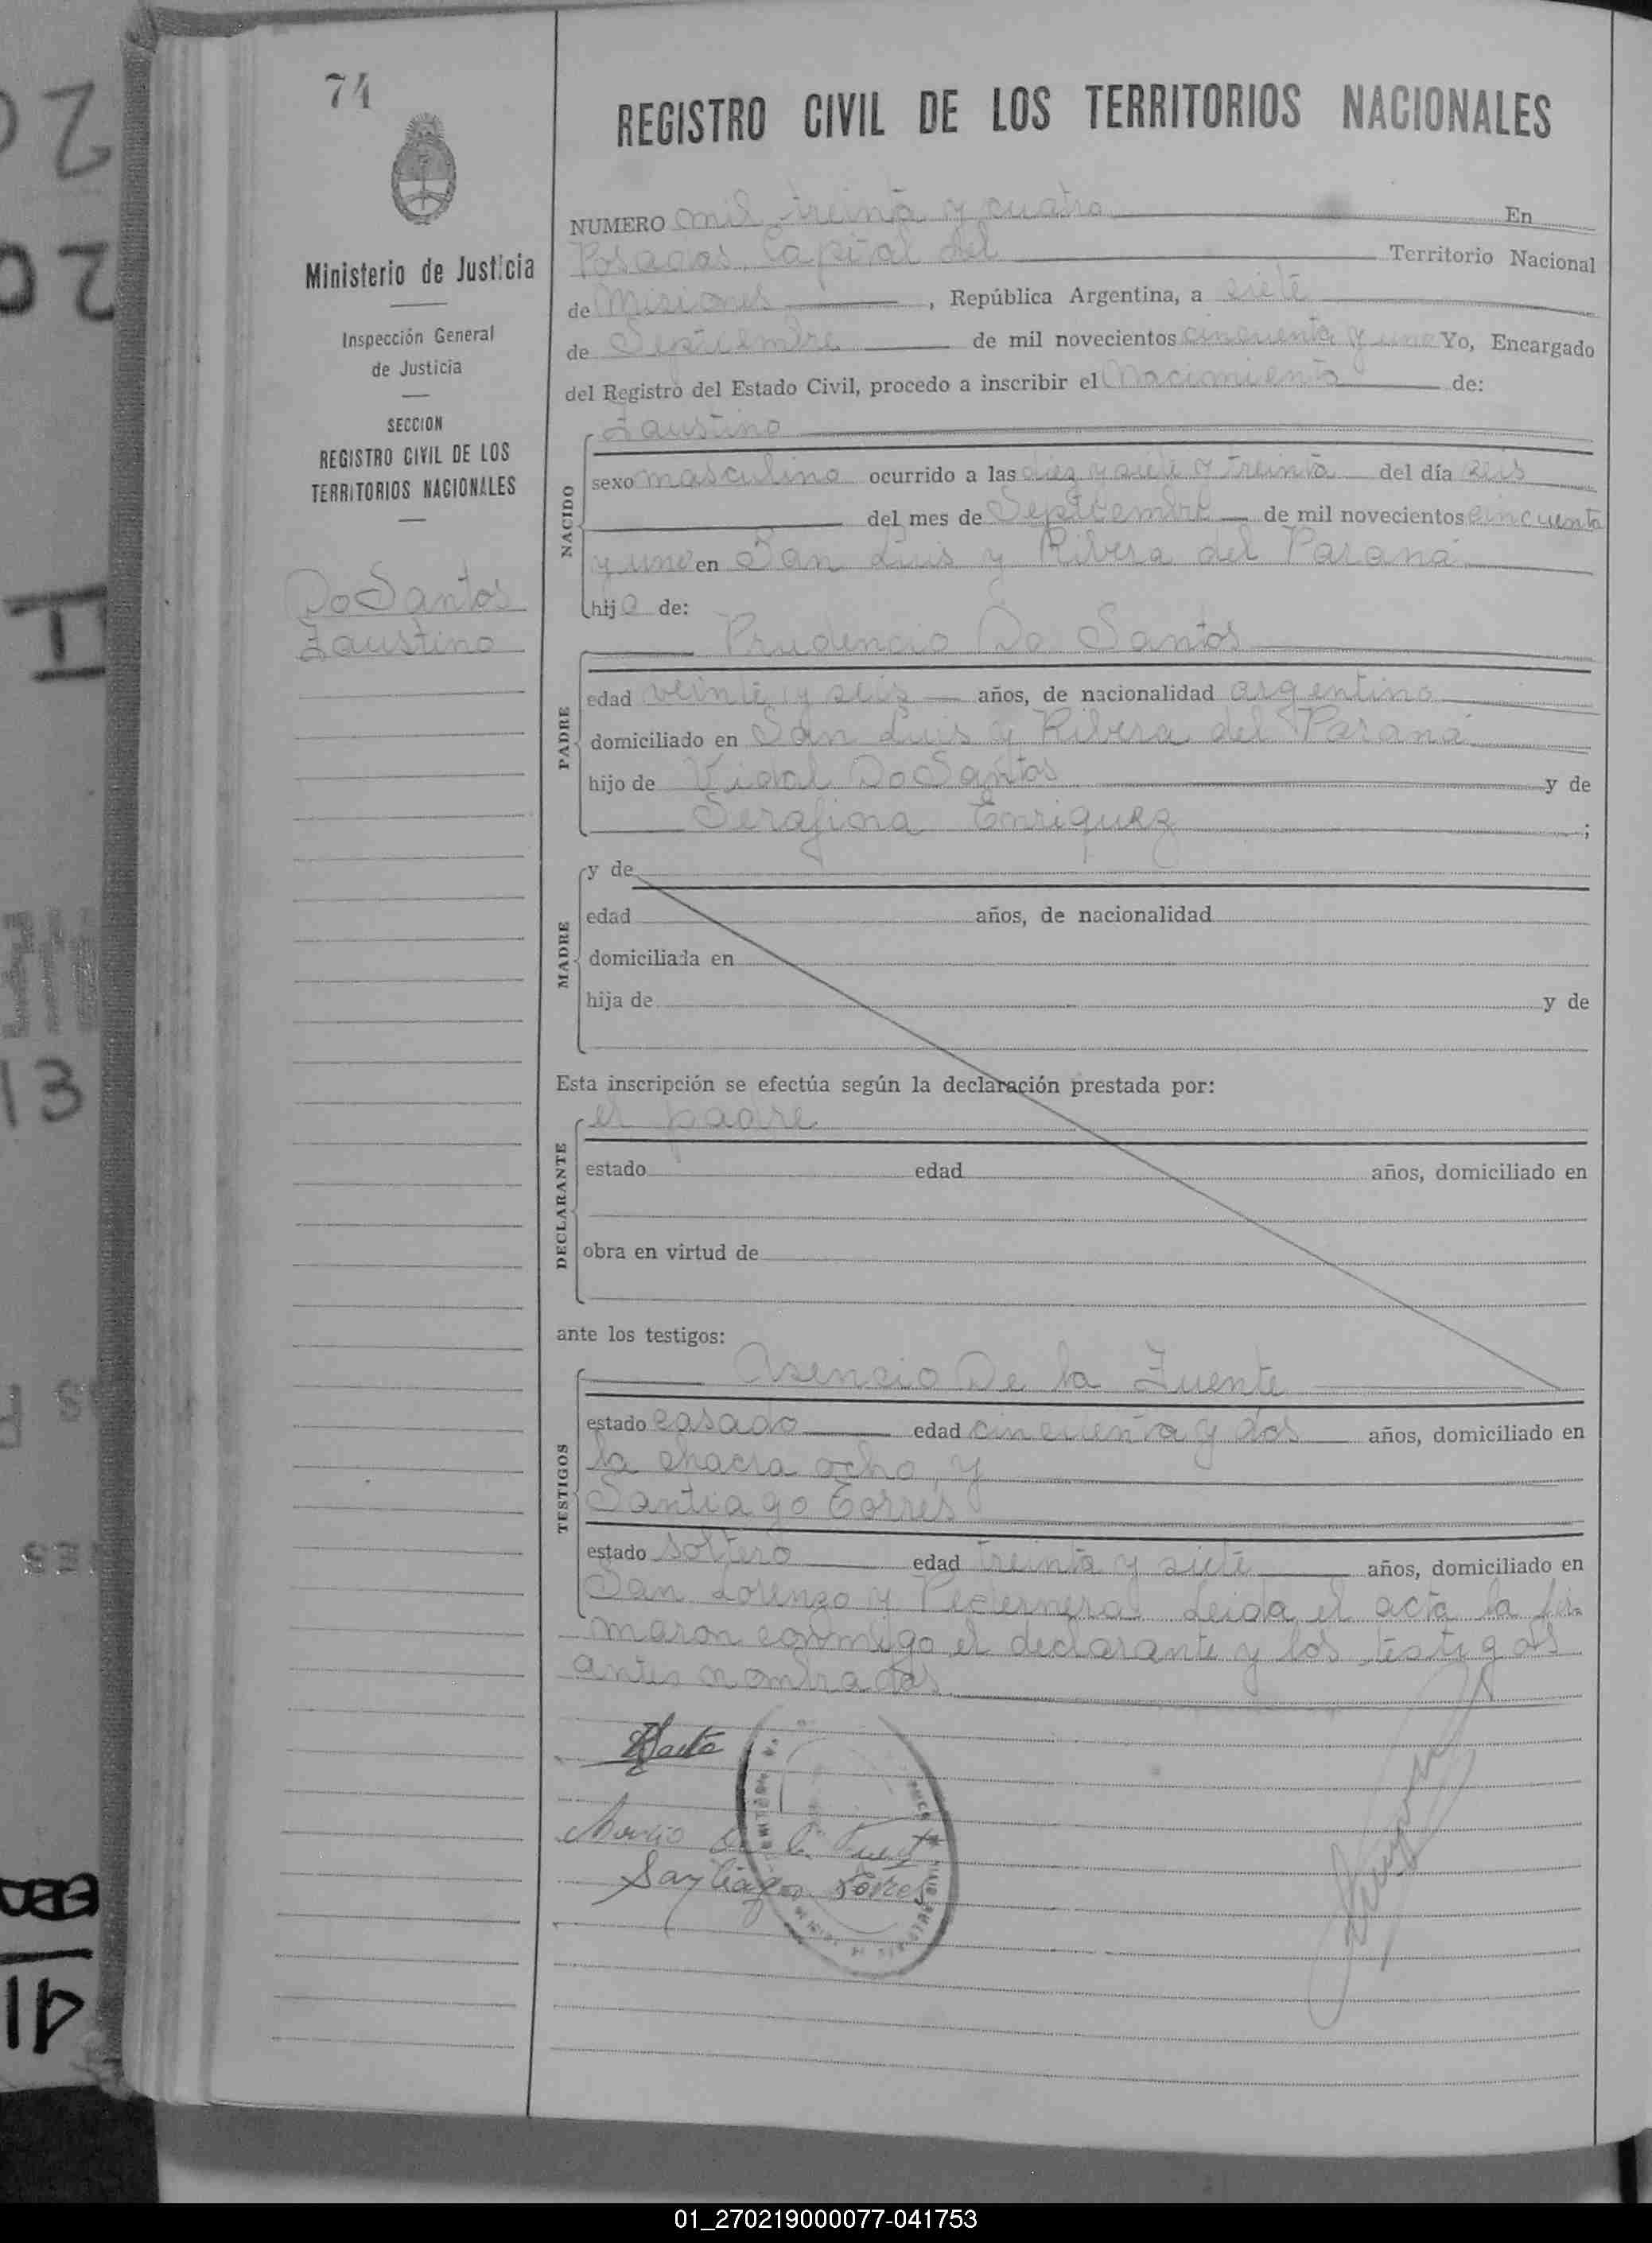 74
REGISTRO CIVIL DE LOS TERRITORIOS NACIONALES
Ministerio de Justicia
Inspección General
de Justicia
SECCION
REGISTRO CIVIL DE LOS
TERRITORIOS NACIONALES
Do Santos
Faustino
NUMERO mil treinta y cuatro En
Posadas Capital del Territorio Nacional
de Misiones, República Argentina, a siete
de Septiembre de mil novecientos cincuenta y uno Yo, Encargado
del Registro del Estado Civil, procedo a inscribir el Nacimiento de:
NACIDO
Faustino
sexo masculino ocurrido a las diez y siete y treinta del día seis
del mes de Septiembre de mil novecientos cincuenta
y uno en San Luis y Ribera del Paraná
hijo de:
PADRE
Prudencio Do Santos
edad veinte y seis años, de nacionalidad argentino
domiciliado en San Luis y Ribera del Paraná
hijo de Vidal Do Santos y de
Serafina Enriquez ;
MADRE
y de
edad años, de nacionalidad
domiciliada en
hija de y de
Esta inscripción se efectúa según la declaración prestada por:
DECLARANTE
el padre
estado edad años, domiciliado en
obra en virtud de
ante los testigos:
TESTIGOS
Asencio De la Fuente
estado casado edad cincuenta y dos años, domiciliado en
la chacra ocho, y
Santiago Torres
estado soltero edad treinta y siete años, domiciliado en
San Lorenzo y Pedernera. Leida el acta la fir-
maron conmigo el declarante y los testigos
antes nombrados
Santiago Torres
01_270219000077-041753